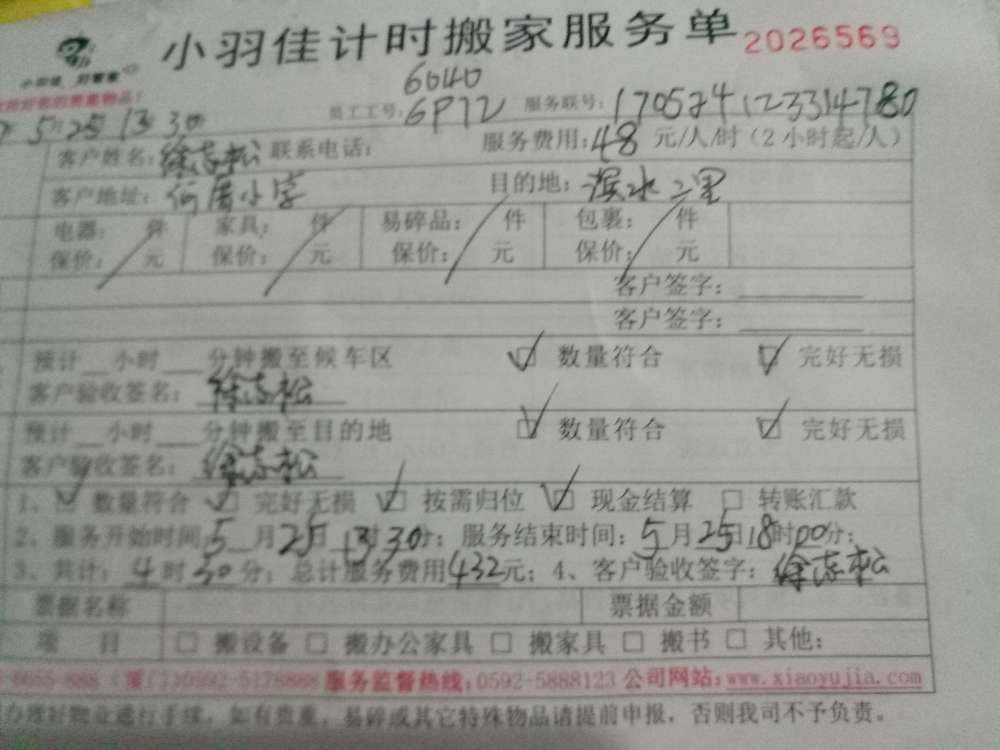 小羽佳计时搬家服务单 2026569
小羽佳 好管家
6040
员工工号: 6P72 服务联号: 1705241233314780
5月25 13 30
客户姓名: 徐志松 联系电话: 服务费用: 48 元/人/时（2小时起/人）
客户地址: 何厝小学 目的地: 滨水二里
电器: 件 家具: 件 易碎品: 件 包裹: 件
保价: 元 保价: 元 保价: 元 保价: 元
客户签字:
客户签字:
预计__小时___分钟搬至候车区 ☑ 数量符合 ☑ 完好无损
客户验收签名: 徐志松
预计__小时___分钟搬至目的地 ☑ 数量符合 ☑ 完好无损
客户验收签名: 徐志松
1、☑ 数量符合 ☑ 完好无损 ☑ 按需归位 ☑ 现金结算 □ 转账汇款
2、服务开始时间: 5月25日13时30分; 服务结束时间: 5月25日18时00分;
3、共计: 4时30分; 总计服务费用432元; 4、客户验收签字: 徐志松
票据名称 票据金额
项 目 □ 搬设备 □ 搬办公家具 □ 搬家具 □ 搬书 □ 其他:
服务监督热线:0592-5888123 公司网站:www.xiaoyujia.com
办理好物业通行手续，如有贵重，易碎或其它特殊物品请提前申报，否则我司不予负责。